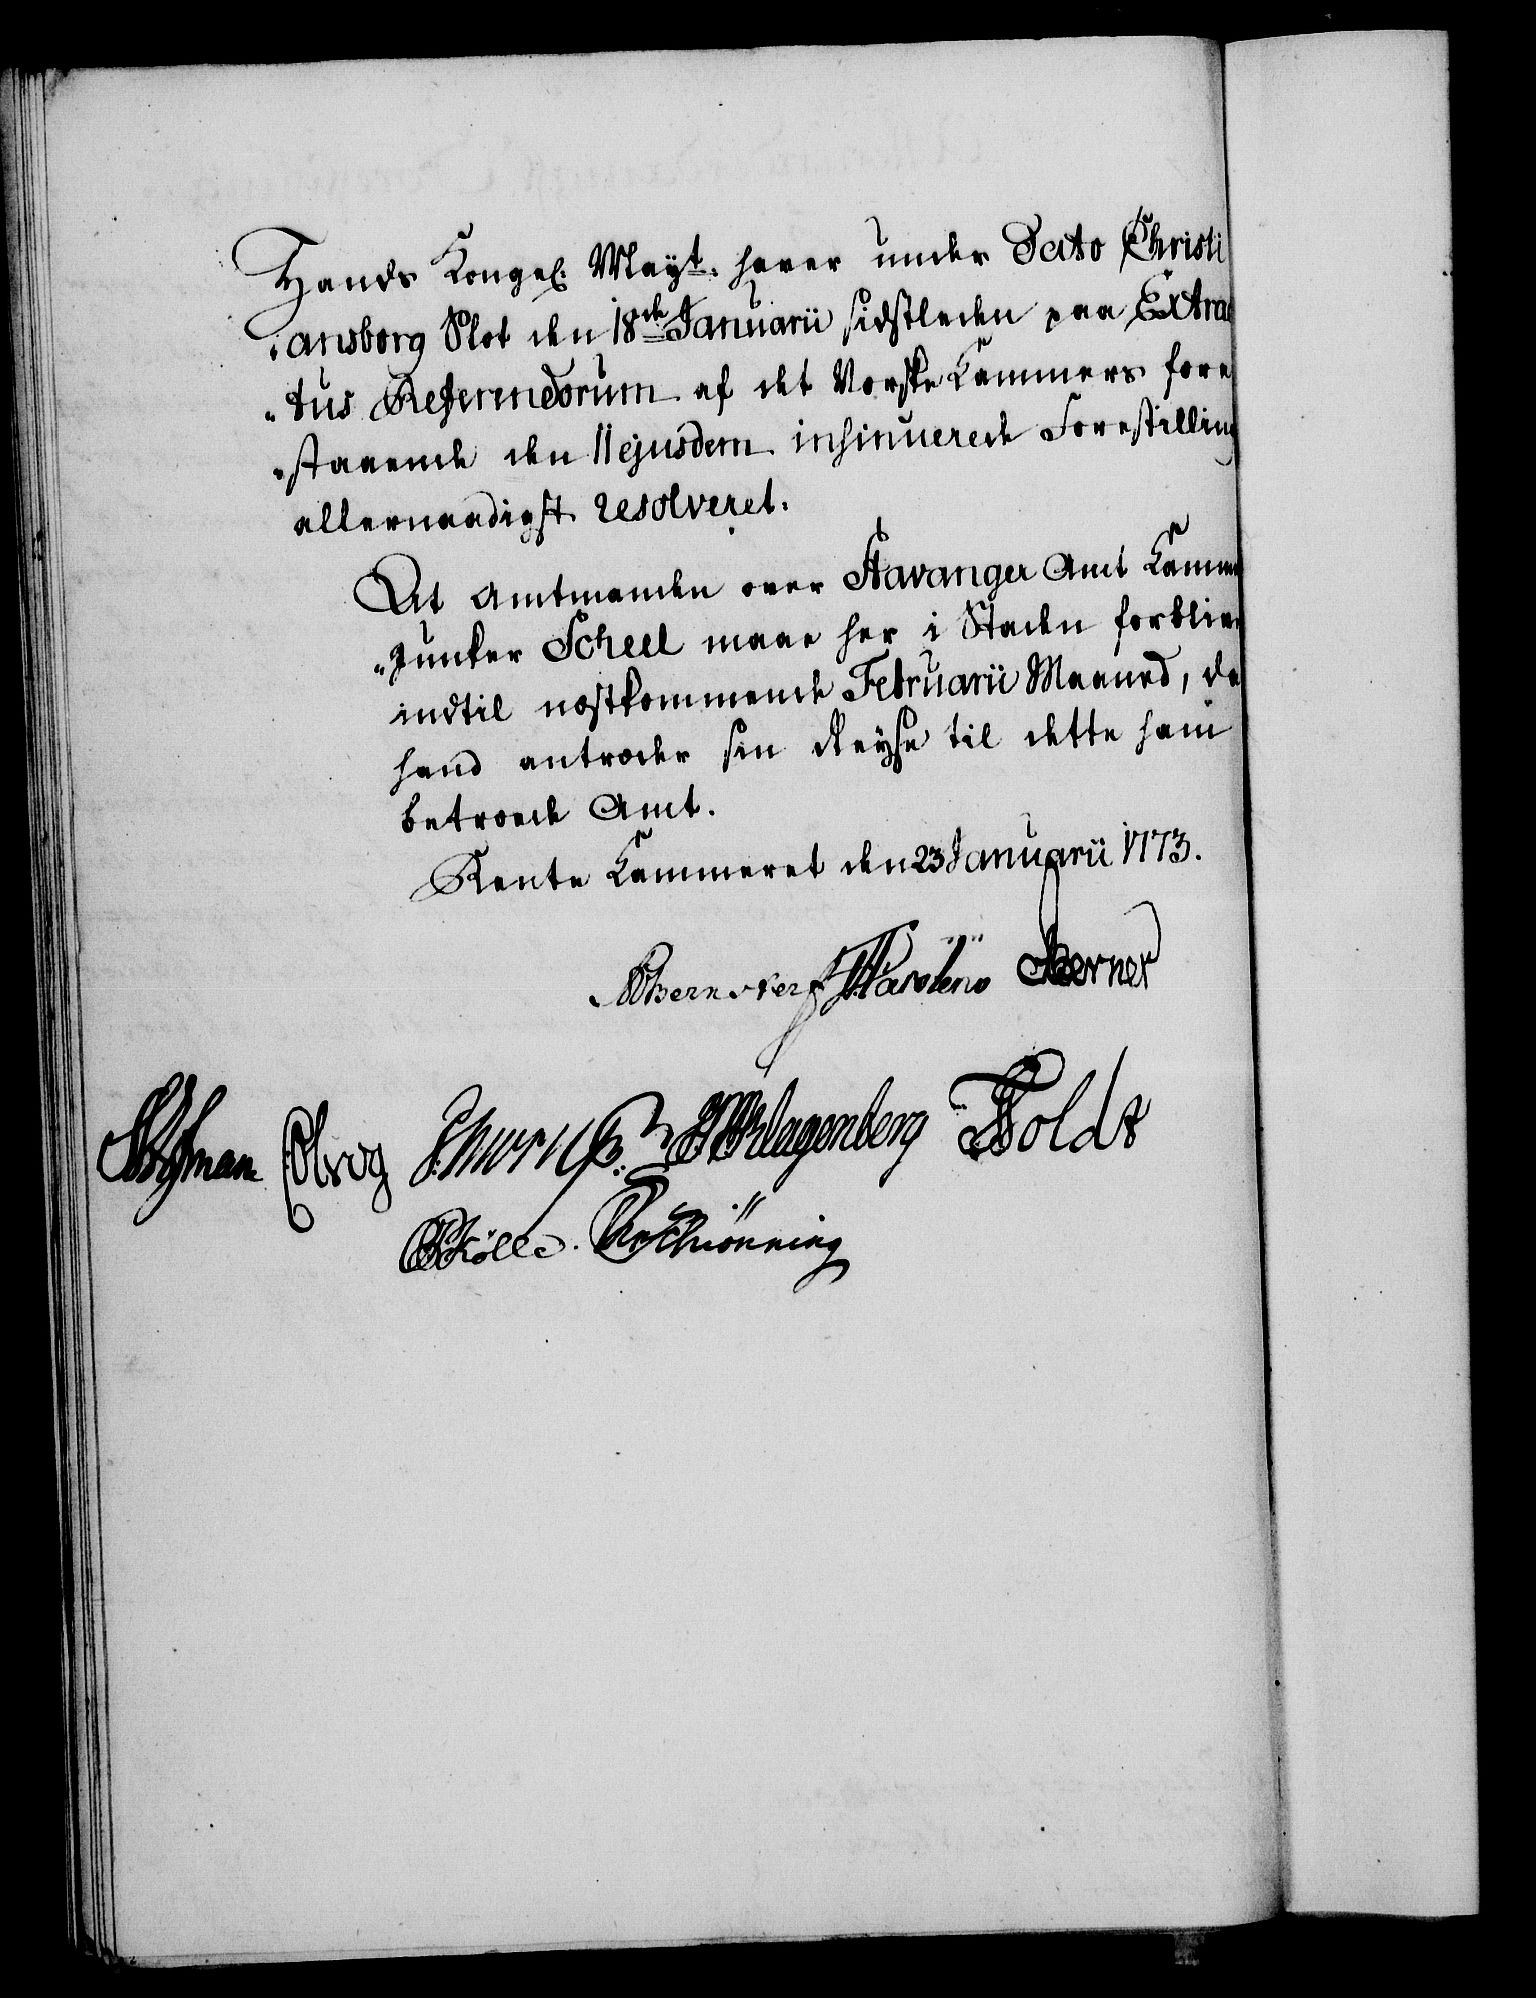 Hands Kongel: Mayt: haver under Dato Christi
„ansborg Slot den 18de Januarii sidstleden paa Extrac
„tus Referendorum af det Norske Kammers fore
„staaende den 11 ejusdem insinuerede Forestilling
allernaadigst resolveret.
At Amtmanden over Stavanger Amt Kammer
„Junker Scheel maae her i Staden forblive
indtil næstkommende Februarii Maaned, da
hand antræder sin Reyse til dette ham
betroede Amt.
Rente Kammeret den 23 Januarii 1773.
Berner
Olrog Klagenberg Holdt
Kölle. Schiönning